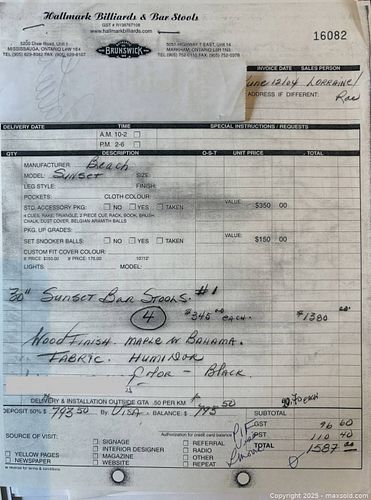 Hallmark Billiards & Bar Stools
www.hallmarkbilliards.com
16082
BRUNSWICK
5200 Dixie Road, Unit 1
MISSISSAUGA, ONTARIO L4W 1E4
MARKHAM, ONTARIO
INVOICE DATE SALES PERSON
June 12/04 Lorraine/
ADDRESS IF DIFFERENT: Rae
DELIVERY DATE TIME SPECIAL INSTRUCTIONS / REQUESTS
A.M. 10-2
P.M. 2-6
QTY DESCRIPTION O-S-T UNIT PRICE TOTAL
MANUFACTURER Beach
MODEL: Sunset SIZE:
LEG STYLE: FINISH:
POCKETS: CLOTH COLOUR:
STD. ACCESSORY PKG: NO YES TAKEN VALUE: $350 00
4 CUES, RAKE, TRIANGLE, 2 PIECE CUE RACK, BOOK, BRUSH,
CHALK, DUST COVER, BELGIAN ARAMITH BALLS
PKG. UP GRADES:
SET SNOOKER BALLS: NO YES TAKEN VALUE: $150 00
CUSTOM FIT COVER COLOUR:
LIGHTS: MODEL:
30" Sunset Bar Stools. #1
4 $345.00 each. $1380 00
Wood Finish. Maple in Bahama.
Fabric. Humidor
Color - Black
DELIVERY & INSTALLATION OUTSIDE GTA .50 PER KM
DEPOSIT 50% $ 793.50 By: VISA BALANCE $ 793.50
SUBTOTAL
GST 96 60
PST 110 40
TOTAL 1587 00
SOURCE OF VISIT:
Authorization for credit card balance
YELLOW PAGES
NEWSPAPER
SIGNAGE
INTERIOR DESIGNER
MAGAZINE
WEBSITE
REFERRAL
RADIO
OTHER
REPEAT
Copyright 2025 - maxsold.com